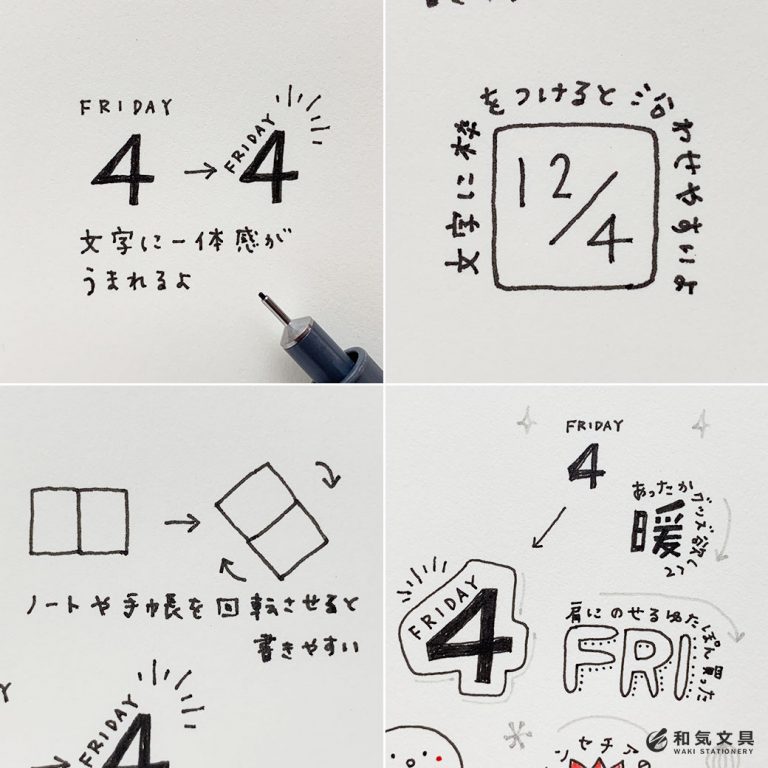 FRIDAY
4
→
FRIDAY
4
文字に一体感が
うまれるよ
文字に枠をつけると沿わせやすいよ
12/4
→
ノートや手帳を回転させると
書きやすい
FRIDAY
4
FRIDAY
4
あったかグッズ欲しい
暖
FRIDAY
4
肩にのせるゆたぽん買った
FRI
和気文具
WAKI STATIONERY